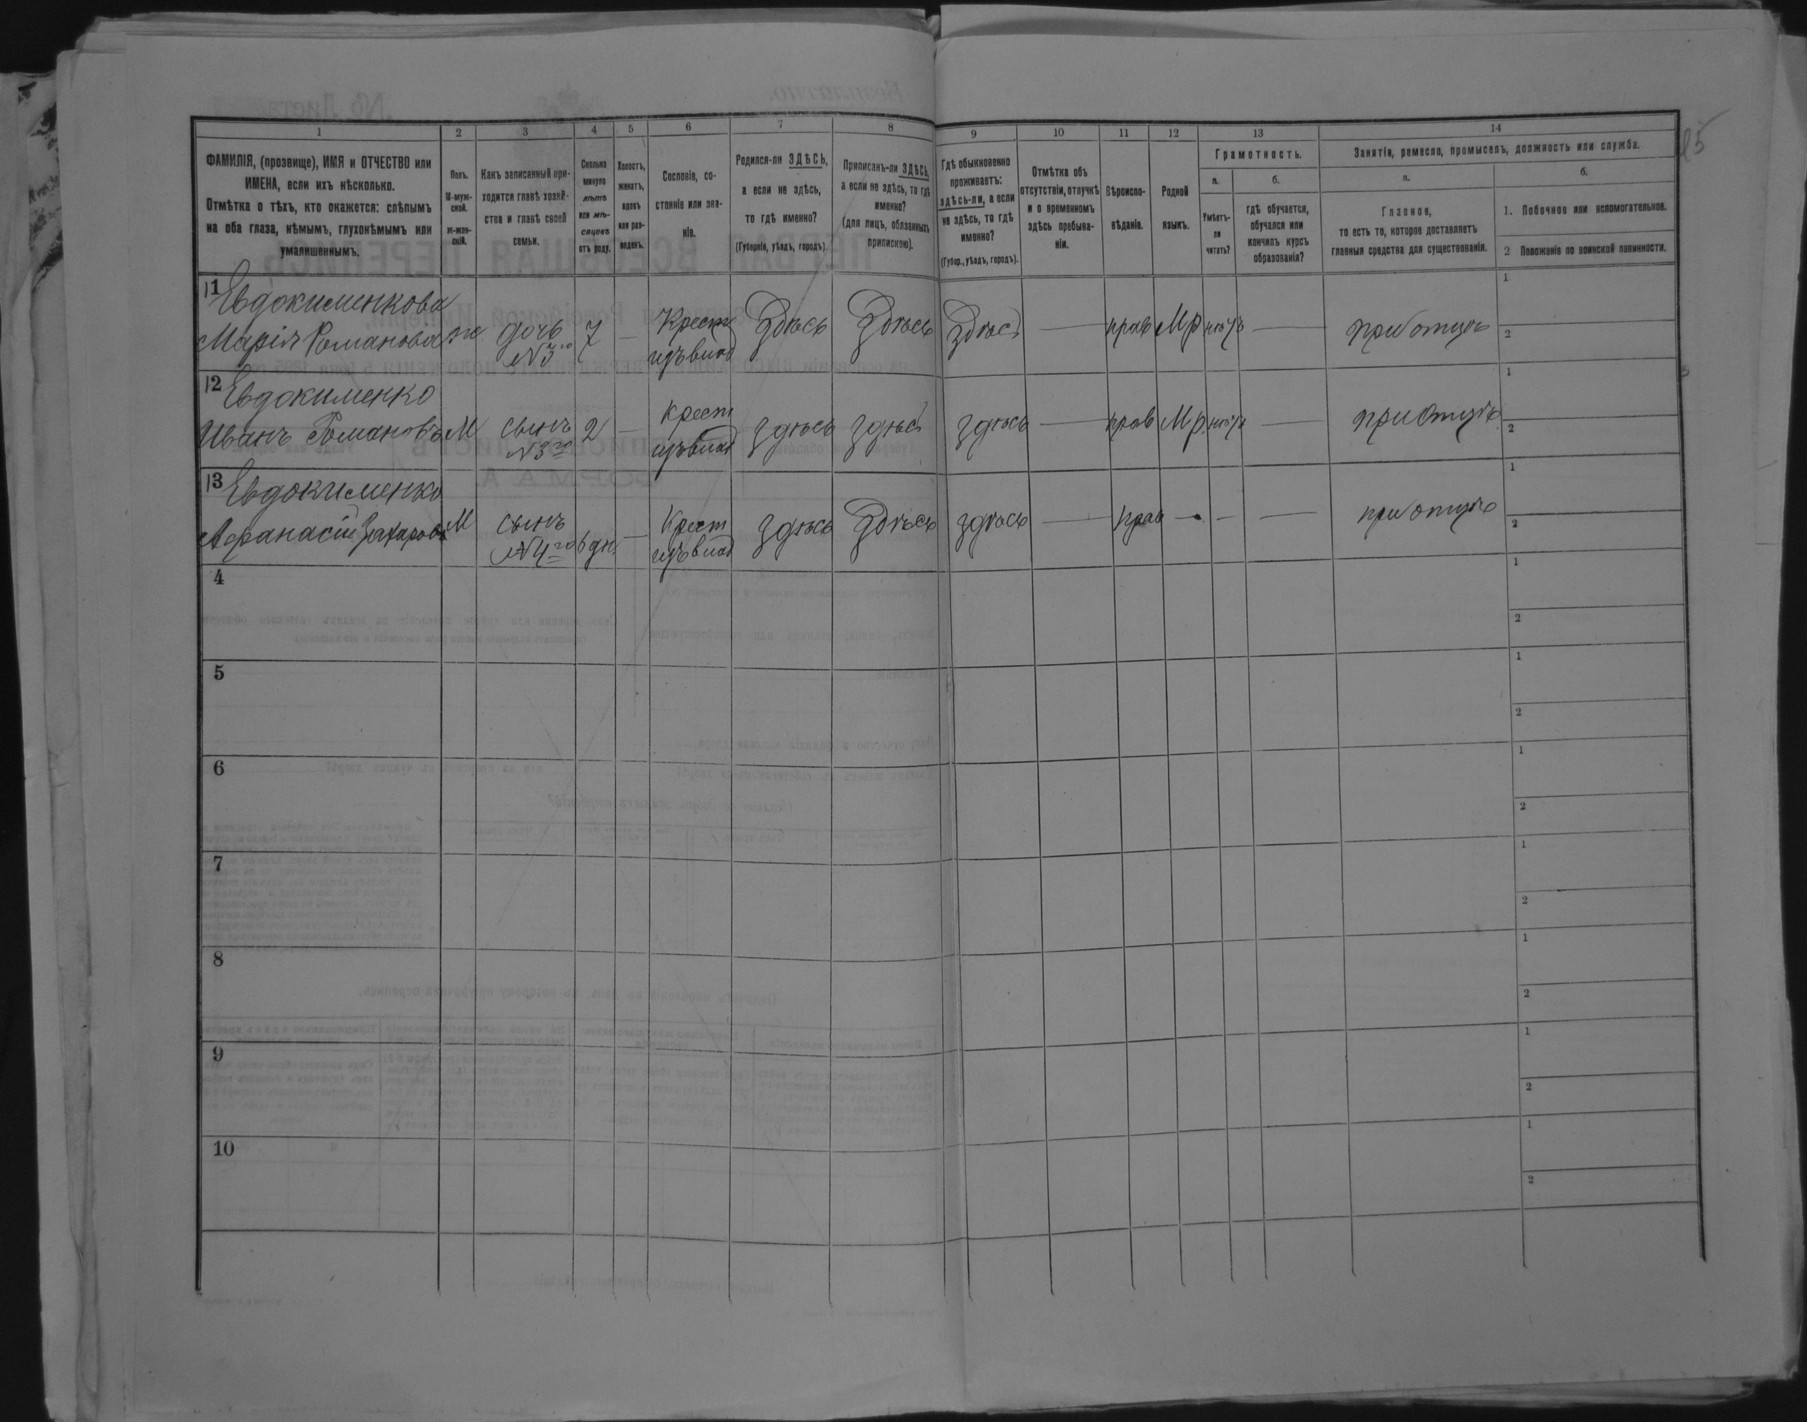 1 2 3 4 5 6 7 8 9 10 11 12 13 14
ФАМИЛІЯ, (прозвище), ИМЯ и ОТЧЕСТВО или
ИМЕНА, если ихъ нѣсколько.
Отмѣтка о тѣхъ, кто окажется: слѣпымъ
на оба глаза, нѣмымъ, глухонѣмымъ или
умалишеннымъ.
Полъ.
М-муж-
ской.
ж-жен-
скій.
Какъ записанный при-
ходится главѣ хозяй-
ства и главѣ своей
семьи.
Сколько
минуло
лѣтъ
или мѣ-
сяцевъ
отъ роду.
Холостъ,
женатъ,
вдовъ
или раз-
веденъ.
Сословіе, со-
стояніе или зва-
ніе.
Родился-ли ЗДѢСЬ,
а если не здѣсь,
то гдѣ именно?
(Губернія, уѣздъ, городъ).
Приписанъ-ли ЗДѢСЬ,
а если не здѣсь, то гдѣ
именно?
(для лицъ, обязанныхъ
припискою).
Гдѣ обыкновенно
проживаетъ:
здѣсь-ли, а если
не здѣсь, то гдѣ
именно?
(Губер., уѣздъ, городъ).
Отмѣтка объ
отсутствіи, отлучкѣ
и о временномъ
здѣсь пребыва-
ніи.
Вѣроиспо-
вѣданіе.
Родной
языкъ.
Грамотность.
а.
Умѣетъ-
ли
читать?
б.
гдѣ обучается,
обучался или
кончилъ курсъ
образованія?
Занятіе, ремесло, промыселъ, должность или служба.
а.
Главное,
то есть то, которое доставляетъ
главныя средства для существованія.
б.
1. Побочное или вспомогательное.
2 Положеніе по воинской повинности.
11 Евдокименкова
Марія Романова ж дочь 7 — Крест Здѣсь Здѣсь Здѣсь — прав Мр нѣтъ — при отцѣ
N 3го
12 Евдокименко
Иванъ Романовъ М сынъ 2 — Крест здѣсь здѣсь здѣсь — прав Мр нѣтъ — при отцѣ
N 3го
13 Евдокименко
Афанасій Захаровъ М сынъ 6 дн — Крест здѣсь Здѣсь здѣсь — прав — — — при отцѣ
N 4го
4
5
6
7
8
9
10